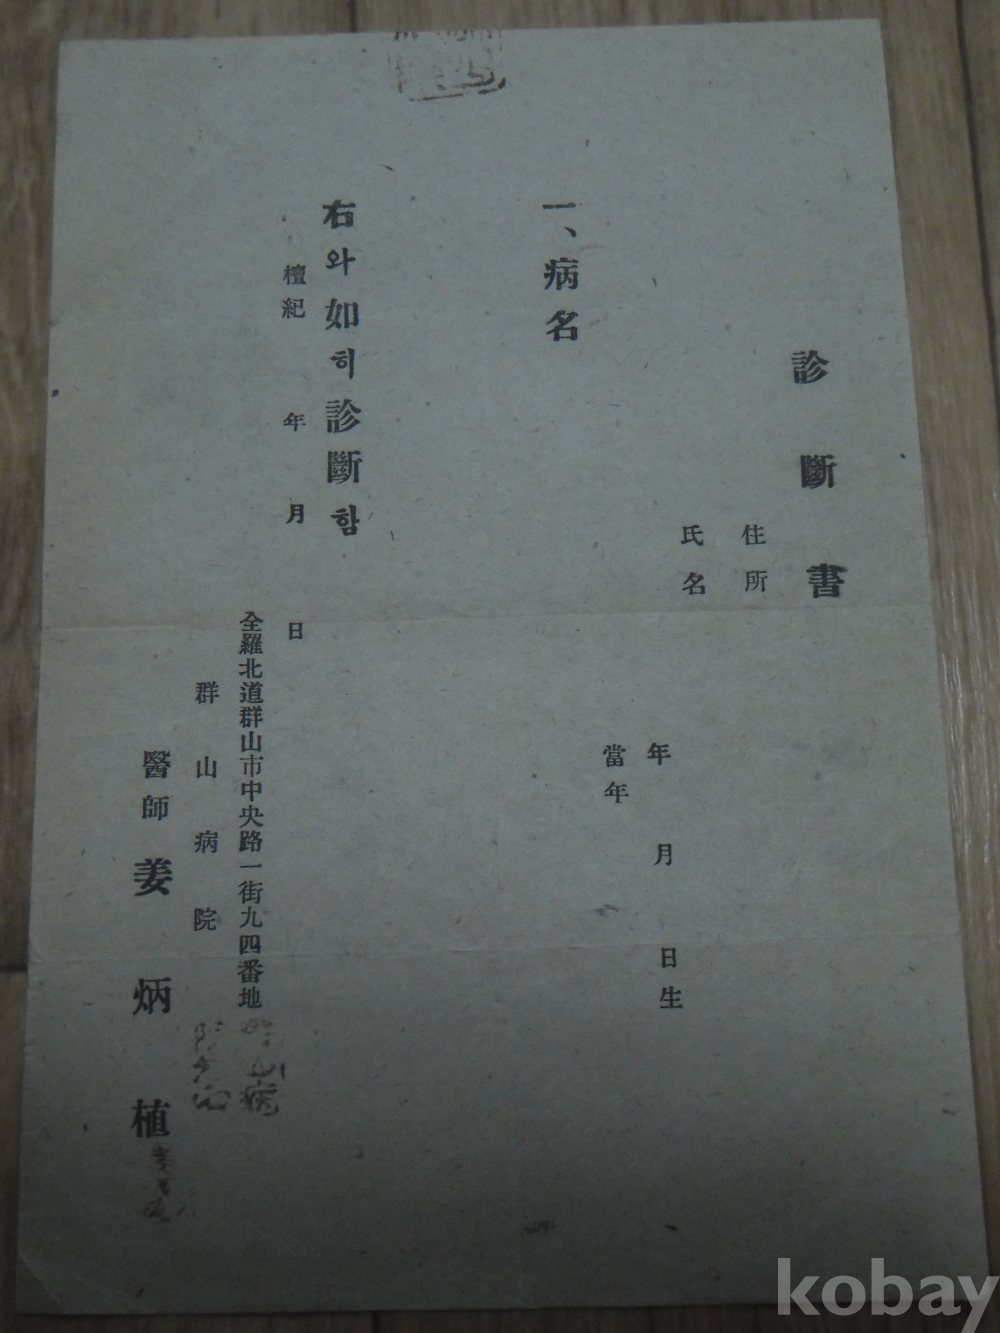 診斷書
住所
氏名
年 月 日生
當年
一、病名
右와如히診斷함
檀紀 年 月 日
全羅北道群山市中央路一街九四番地
群山病院
醫師 姜炳植
kobay